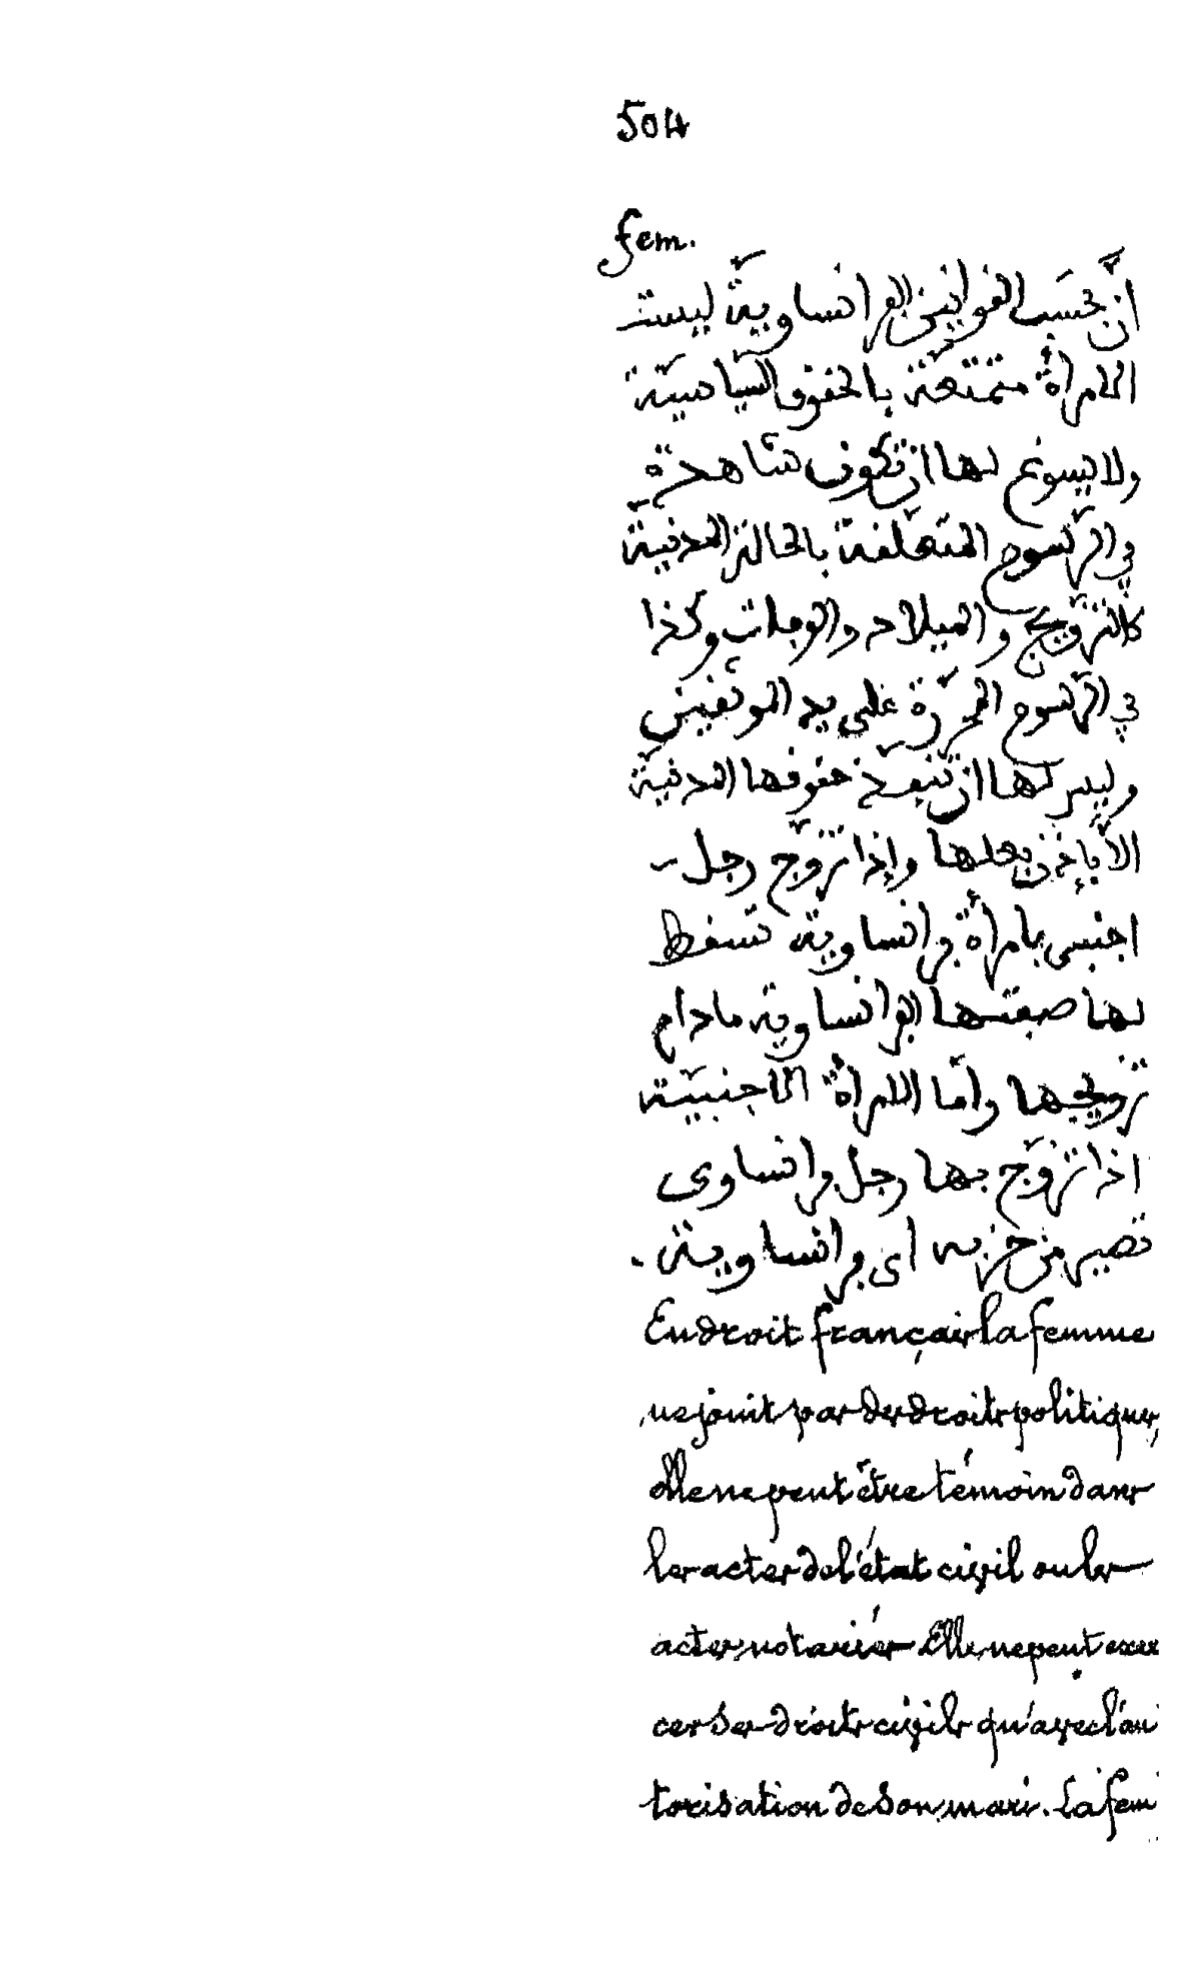 504
fem.
انّ بحسَب القوانين الفرانساويّة ليست
الامرأة متمتّعة بالحقوق السّياسيّة
ولا يسوغ لها ان تكون شاهدة
في الرّسوم المتعلّقة بالحالة المدنيّة
كالتزوّيج والميلاد والوفات وكذا
في الرّسوم المحرّرة على يد الموثّقين
وليس لها ان تنفّذ حقوقها المدنيّة
الاّ بإذن بعلها وإذا تزوّج رجل
اجنبى بامرأة فرانساوية تسقط
لها صفتها الفرانساوية مادام
تزويجها وأمّا الامرأة الاجنبيّة
اذا تزوّج بها رجل فرانساوى
تصير من حزبه اى فرانساوية .
En droit français la femme
ne jouit pas des droits politiques,
elle ne peut être témoin dans
les actes de l'état civil ou les
actes notariés. Elle ne peut exer
cer ses droits civils qu'avec l'au
torisation de son mari. La fem